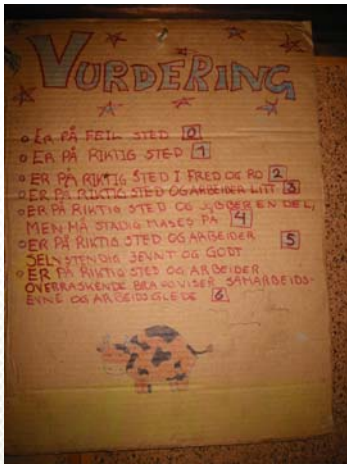 VURDERING
• ER PÅ FEIL STED 0
• ER PÅ RIKTIG STED 1
• ER PÅ RIKTIG STED I FRED OG RO 2
• ER PÅ RIKTIG STED OG ARBEIDER LITT 3
• ER PÅ RIKTIG STED OG JOBBER EN DEL,
MEN MÅ STADIG MASES PÅ 4
• ER PÅ RIKTIG STED OG ARBEIDER 5
SELVSTENDIG JEVNT OG GODT
• ER PÅ RIKTIG STED OG ARBEIDER
OVERRASKENDE BRA OG VISER SAMARBEIDS-
EVNE OG ARBEIDSGLEDE 6